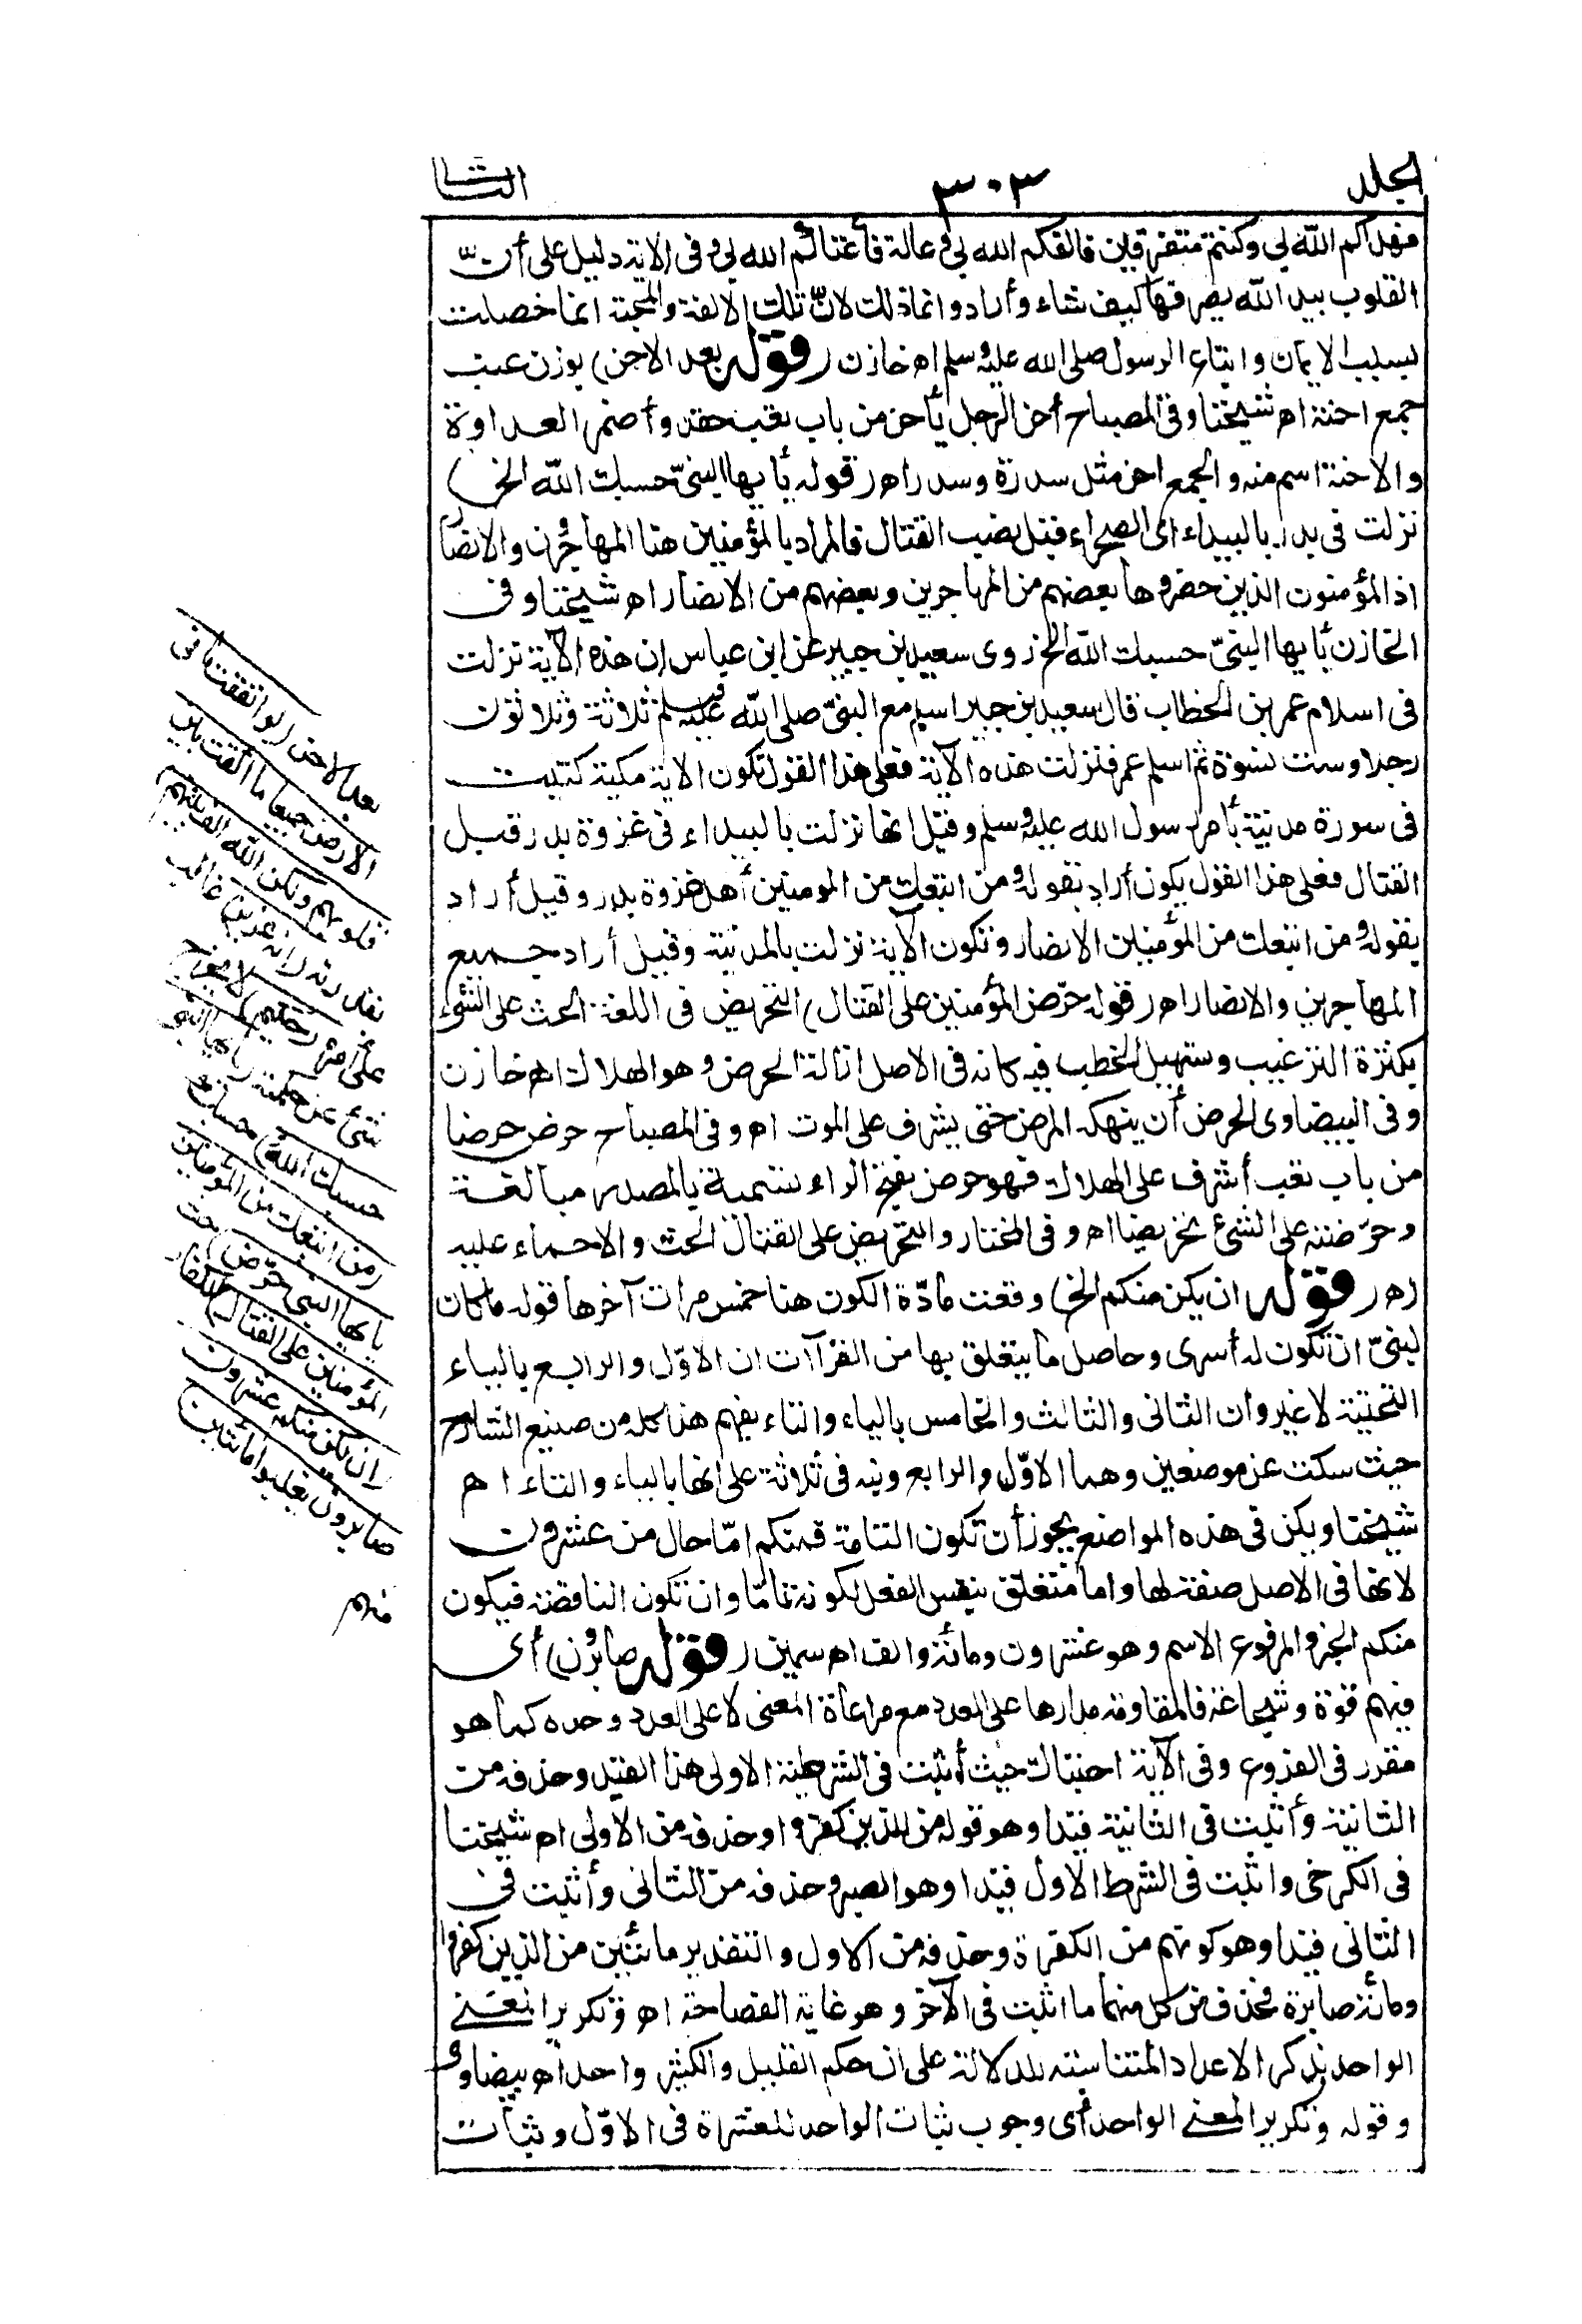 الجلد ٣٠٣ الثانى
فهداكم الله بي وكنتم متفرقين فالفكم الله بي وعالة فأغناكم الله بي وفى الاية دليل على أنّ
القلوب بيد الله يصرفها كيف شاء وأراد وانما ذلك لانّ تلك الالفة والمحبة انما حصلت
بسبب الايمان واتباع الرسول صلى الله عليه وسلم اه خازن (قوله بعد الاحن) بوزن عنب
جمع احنة اه شيخنا وفى المصباح أحن الرجل يأحن من باب تعب حقد وأضمر العداوة
والاحنة اسم منه والجمع احن مثل سدرة وسدر اه (قوله يأيها النبىّ حسبك الله الخ)
نزلت فى بدر بالبيداء اى الصحراء قبل نصب القتال فالمراد بالمؤمنين هنا المهاجرن والانصار
اذ المؤمنون الذين حضروها بعضهم من المهاجرين وبعضهم من الانصار اه شيخنا وفى
الخازن يأيها النبىّ حسبك الله الخ روى سعيد بن جبير عن ابن عباس ان هذه الآية نزلت
فى اسلام عمر بن الخطاب قال سعيد بن جبير اسلم مع النبىّ صلى الله عليه وسلم ثلاثة وثلاثون
رجلا وست نسوة ثم اسلم عمر فنزلت هذه الآية فعلى هذا القول تكون الاية مكية كتبت
فى سورة مدنية بأمر رسول الله عليه وسلم وقيل انها نزلت بالبيداء فى غزوة بدر قبل
القتال فعلى هذا القول يكون أراد بقوله ومن اتبعك من المومنين أهل غزوة بدر وقيل أراد
بقوله ومن اتبعك من المؤمنين الانصار وتكون الآية نزلت بالمدنية وقيل أراد جميع
المهاجرين والانصار اه (قوله حرّض المؤمنين على القتال) التحريض فى اللغة الحث على الشئ
بكثرة الترغيب وتسهيل الخطب فيه كانه فى الاصل ازالة الحرض وهو الهلاك اه خازن
وفى البيضاوى الحرض أن ينهكه المرض حتى يشرف على الموت اه وفى المصباح حرض حرضا
من باب تعب أشرف على الهلاك فهو حرض بفتح الراء تسمية بالمصدر مبالغة
وحرّضته على الشئ تحريضا اه وفى المختار والتحريض على القتال الحث والاحماء عليه
اه (قوله ان يكن منكم الخ) وقعت مادّة الكون هنا خمس مرات آخرها قوله ما كان
لنبىّ ان تكون له أسرى وحاصل ما يتعلق بها من القرآات ان الاوّل والرابع بالياء
التحتية لا غير وان الثانى والثالث والخامس بالياء والتاء يفهم هذا كله من صنيع الشارح
حيث سكت عن موضعين وهما الاوّل والرابع ونبه فى ثلاثة على انها بالياء والتاء اه
شيخنا ويكن فى هذه المواضع يجوز أن تكون التامة فمنكم امّا حال من عشرون
لانها فى الاصل صفة لها واما متعلق بنفس الفعل لكونه تامّا وان تكون الناقصة فيكون
منكم الخبر والمرفوع الاسم وهو عشرون ومائة والف اه سمين (قوله صابرون) أى
فيهم قوة وشجاعة فالمقاومة مدارها على العدد مع مراعاة المعنى لا على العدد وحده كما هو
مقرر فى الفروع وفى الآية احتباك حيث أثبت فى الشرطية الاولى هذا القيد وحذفه من
الثانية وأثبت فى الثانية قيدا وهو قوله من الذين كفروا وحذفه من الاولى اه شيخنا
فى الكرخى واثبت فى الشرط الاول قيدا وهو الصبر وحذفه من الثانى وأثبت فى
الثانى قيدا وهو كونهم من الكفرة وحذفه من الاول والتقدير مائتين من الذين كفروا
ومائة صابرة فحذف من كل منهما ما اثبت فى الآخر وهو غاية الفصاحة اه وتكرير المعنى
الواحد بذكر الاعداد المتناسبة للدلالة على ان حكم القليل والكثير واحد اه بيضاوى
وقوله وتكرير المعنى الواحد أى وجوب ثبات الواحد للعشرة فى الاوّل وثبات
بعد الاحن (لو انفقت ما فى
الارض جميعا ما الفت بين
قلوبهم ولكن الله الف بينهم)
بقدرته (انه عزيز) غالب
على أمره (حكيم) لا يخرج
شئ عن حكمته (يأيها النبى
حسبك الله) حسبك
(ومن اتبعك من المؤمنين
يأيها النبى حرّض) حث
(المؤمنين على القتال) للكفار
(ان يكن منكم عشرون
صابرون يغلبوا مائتين)
منهم